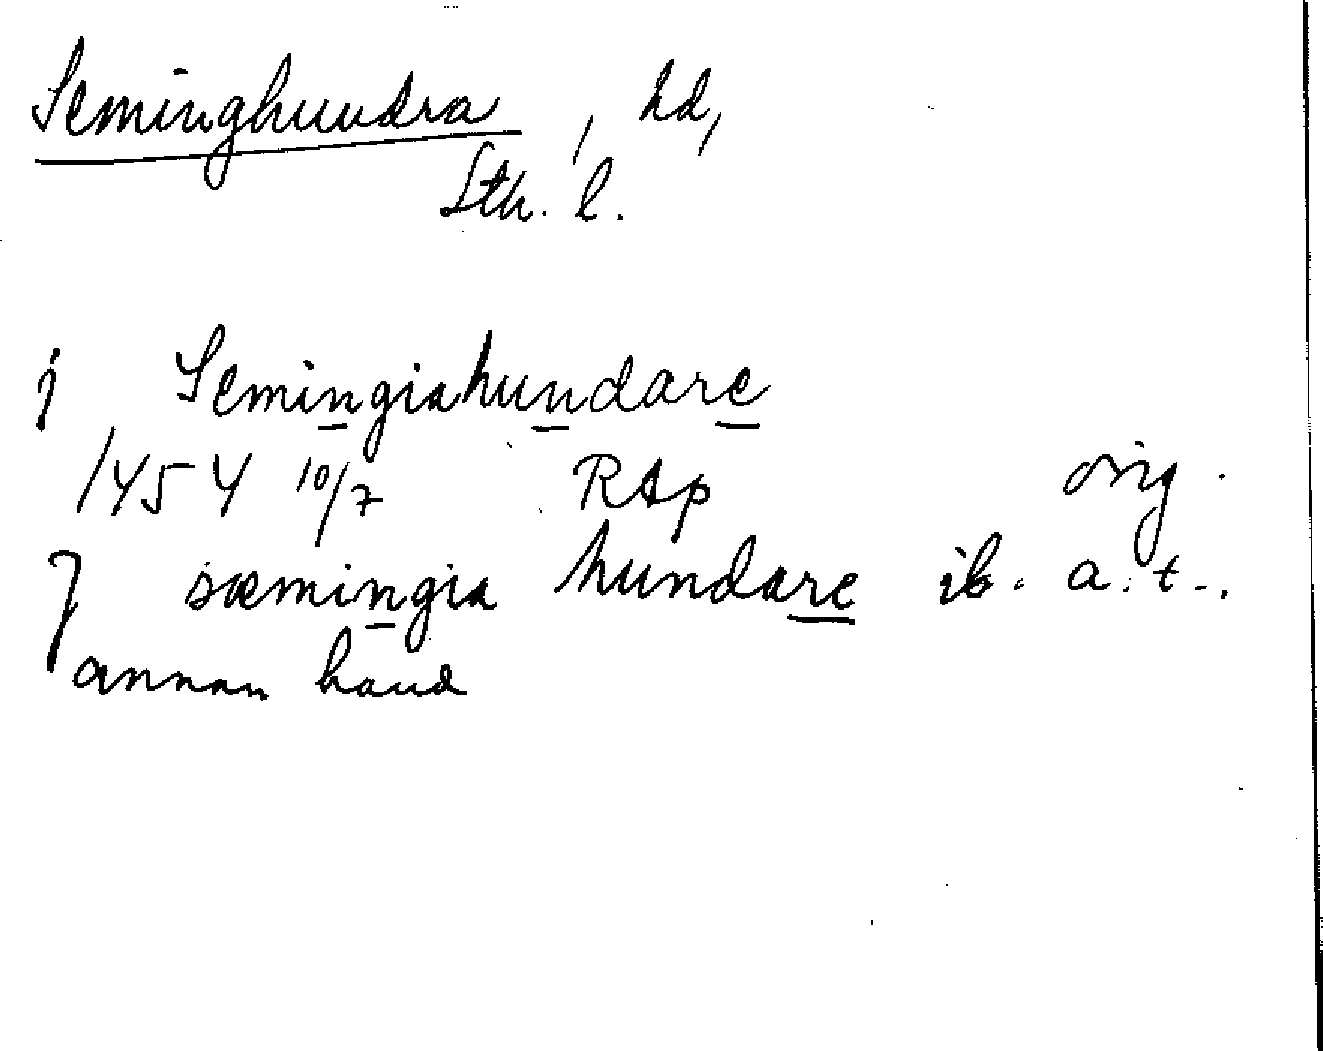 Seminghundra, hd,
Sth. l.
j Semingiahundare
1454 10/7 RAp orig.
J sæmingia hundare ib. a. t.
annan hand